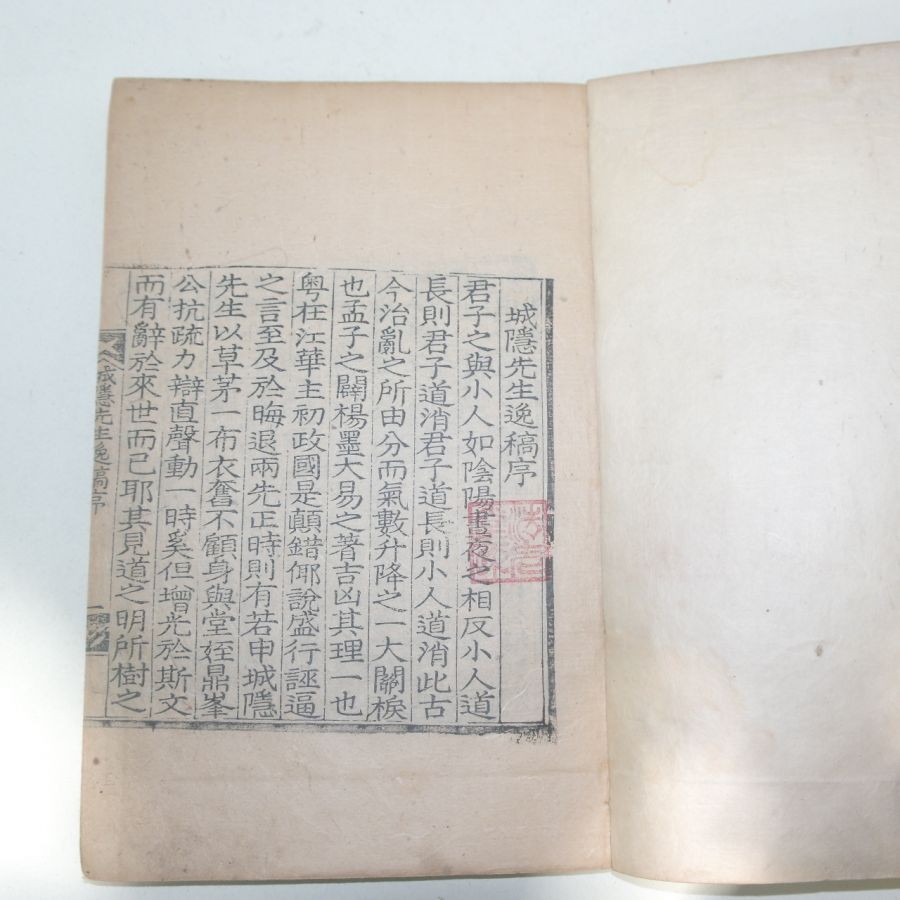 城隱先生逸稿序
君子之與小人如陰陽晝夜之相反小人道
長則君子道消君子道長則小人道消此古
今治亂之所由分而氣數升降之一大關棙
也孟子之闢楊墨大易之著吉凶其理一也
粤在江華主初政國是顛錯倻說盛行誣逼
之言至及於晦退兩先正時則有若申城隱
先生以草茅一布衣奮不顧身與堂姪鼎峯
公抗疏力辯直聲動一時奚但增光於斯文
而有辭於來世而已耶其見道之明所樹之
城隱先生逸稿序
一